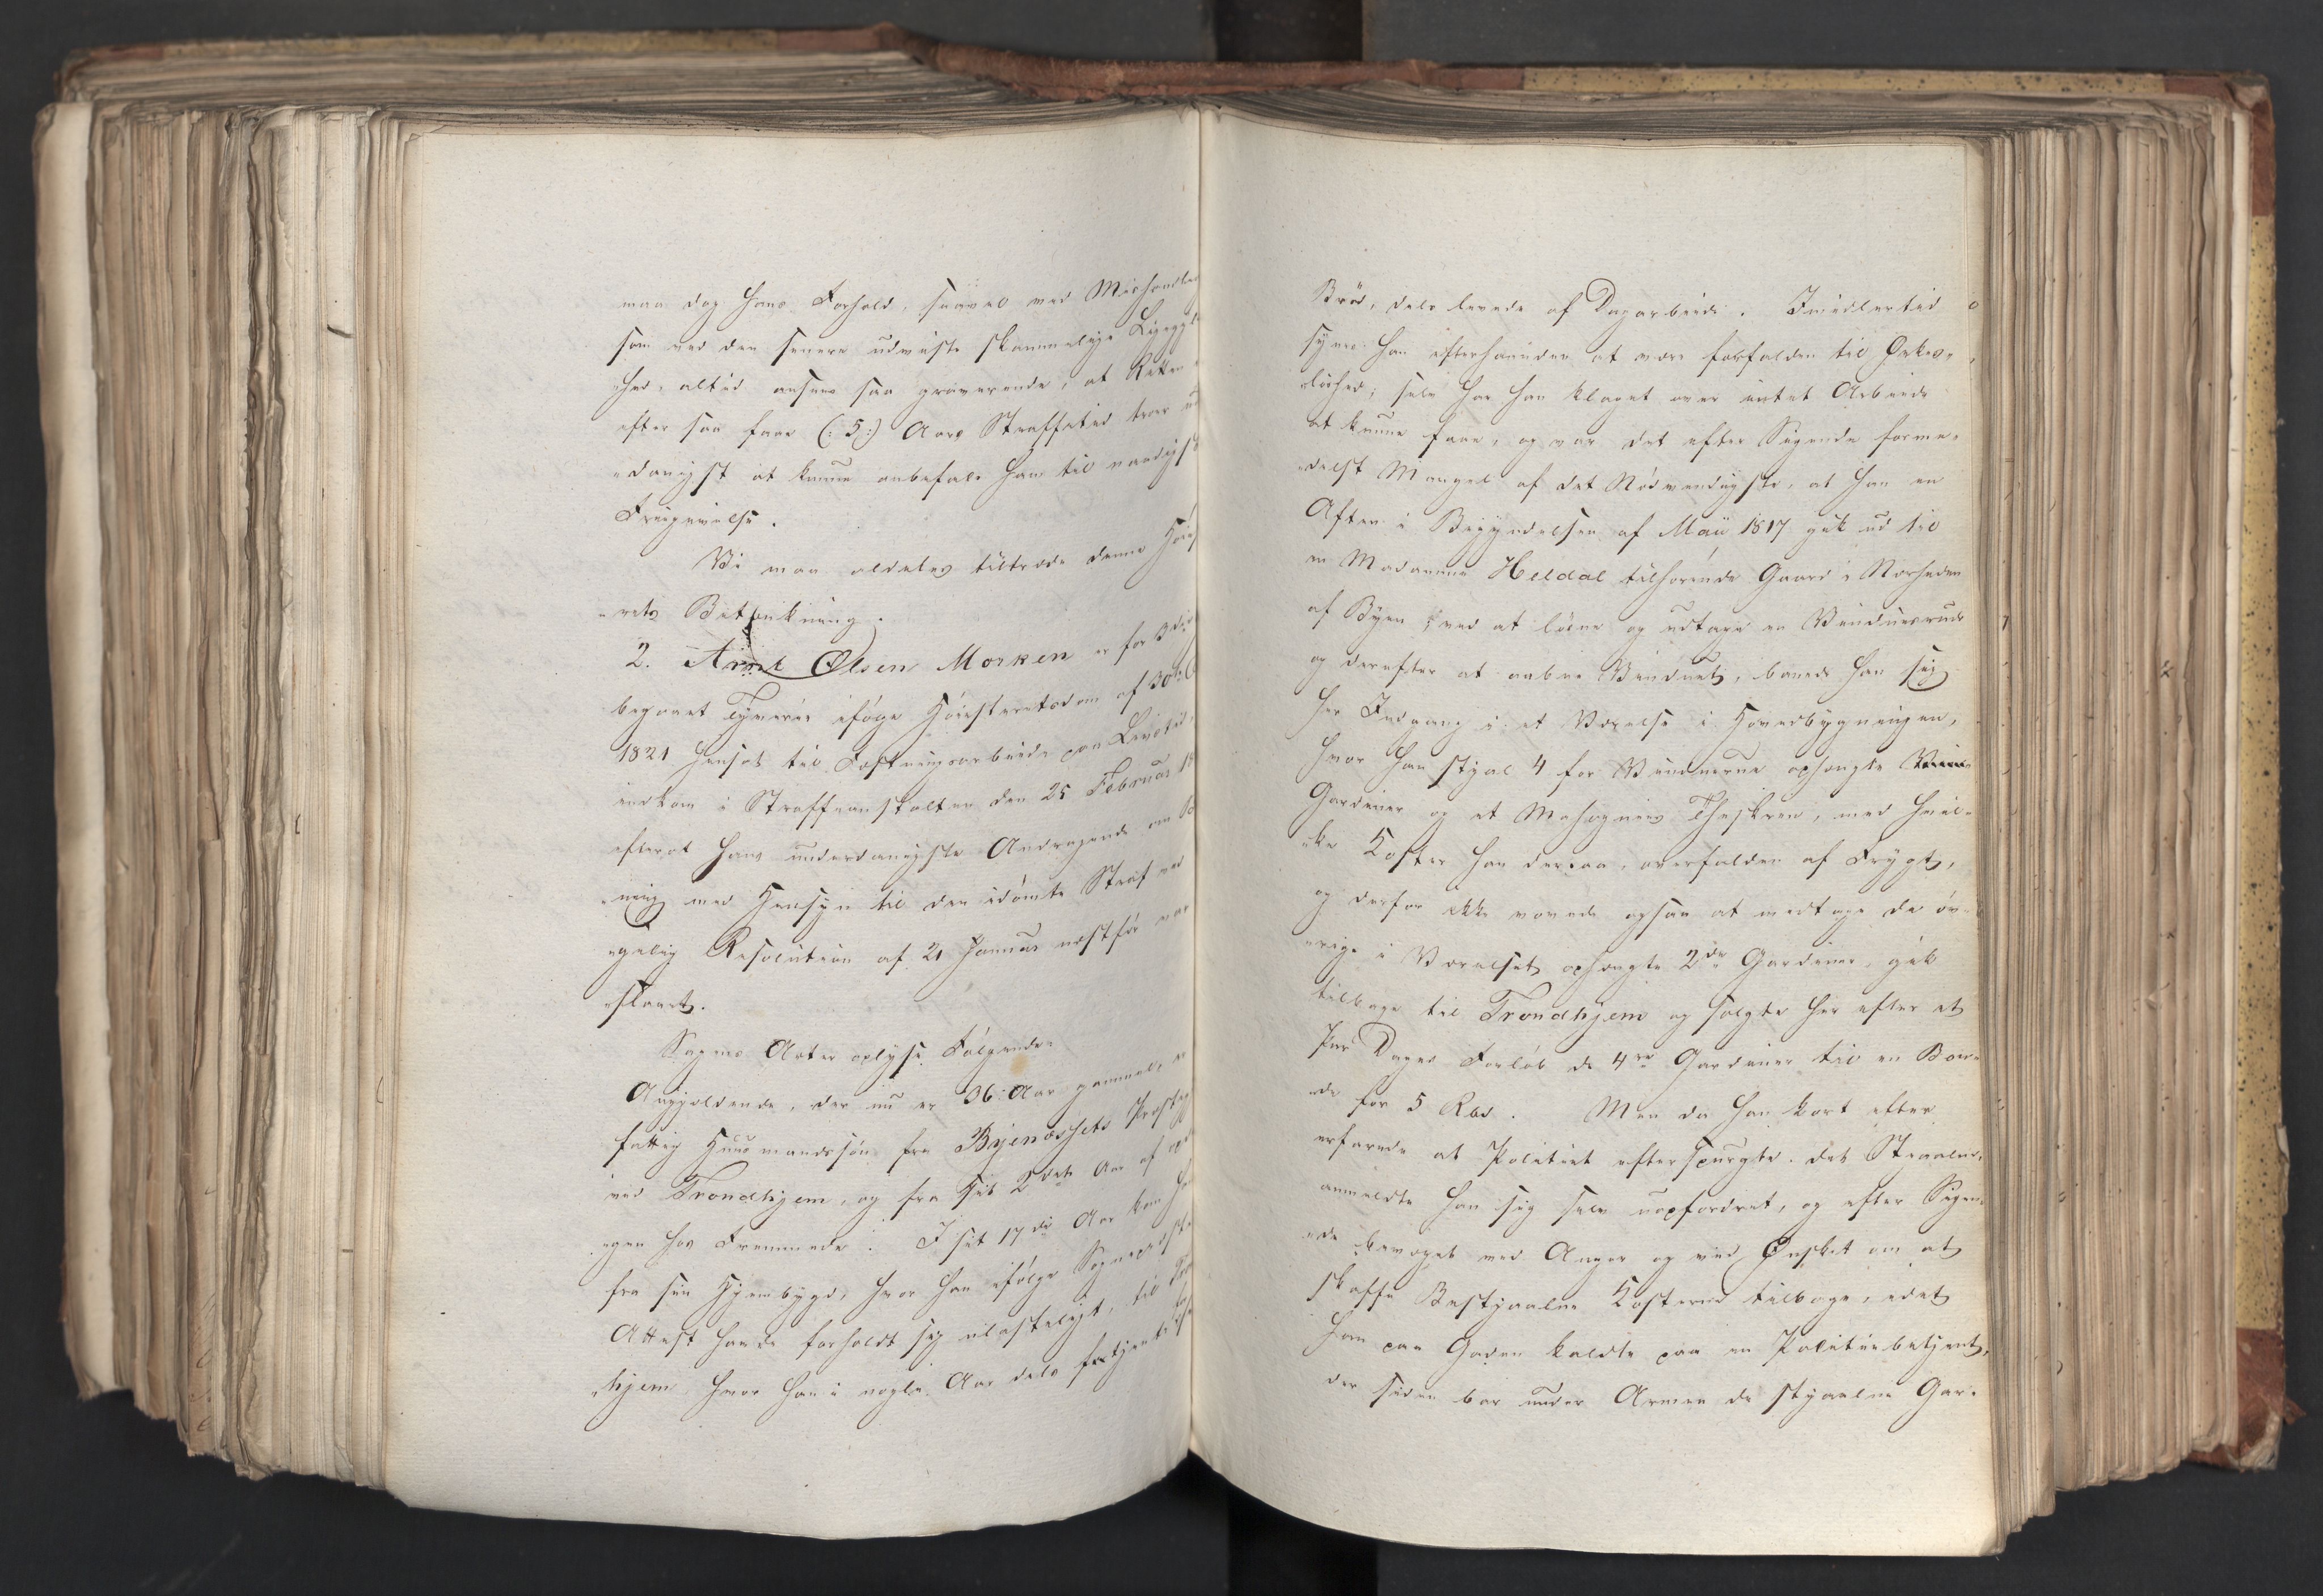 maa dog hans Forhold, saavel med Mishandle
som ved den senere udviste skammelige Ligegyl
„hed, altid ansees saa graverende, at Retten
efter saa faae (: 5 :) Aars Straffetid troer u
„danigst at kunne anbefale ham til naadigst
Frigivelse.
Vi maa aldeles tiltræde denne Høies
„rets Betænkning.
2. Arnt Olsen Morken er for 3die
begaaet Tyverie ifølge Høiesteretsdom af 30te
1821 hensat til Fæstningsarbeide paa Livstid,
indkom i Straffeanstalten den 25 Februar 18
efterat hans underdanigste Andragende om B
„ning med Hensyn til den idømte Straf ved
„gelig Resolution af 21 Januar næstfør var
„slaaet.
Sagens Acter oplyse Følgende:
Angjeldende, der nu er 36 Aar gammel, er
fattig Huusmandssøn fra Bynæssets Præstegj
ved Trondhjem, og fra sit 2det Aar af op
„gen hos Fremmede. I sit 17de Aar kom han
fra sin Hjembygd, hvor han ifølge Sognepræste
Attest havde forholdt sig ulasteligt, til Tron
„hjem hvor han i nogle Aar dels fortjente sit
Brød, dels levede af Dagarbeide. Imidlertid
synes han efterhaanden at være forfalden til Ørkes„
„løshed; selv har han klaget over intet Arbeide
at kunne faae, og var det efter Sigende forme„
„delst Mangel af det Nødvendigste, at han en
Aften i Begyndelsen af Maii 1817 gik ud til
en Madamme Heldal tilhørende Gaard i Nærheden
af Byen; ved at løsne og udtage en Vinduesrude
og derefter at aabne Vinduet, banede han sig
her Indgang i et Værelse i Hovedbygningen,
hvor han stjal 4 for Vinduerne ophængte
Gardiner og et Mahognies Theskrin, med hvil„
„ke Koster han derpaa, overfalden af Frygt,
og derfor ikke vovede ogsaa at medtage de øv„
„rige i Værelset ophængte 2de Gardiner, gik
tilbage til Trondhjem og solgte her efter et
Par Dages Forløb de 4re Gardiner til en Bon„
„de for 5 Rbd. Men da han kort efter
erfarede at Politiet efterspurgte det Stjaalne,
anmeldte han sig selv uopfordret, og efter Sigen„
„de bevæget ved Anger og ved Ønsket om at
skaffe Bestjaalne Kosterne tilbage, idet
han paa Gaden kaldte paa en Politiebetjent,
der siden bar under Armen de stjaalne Gar„